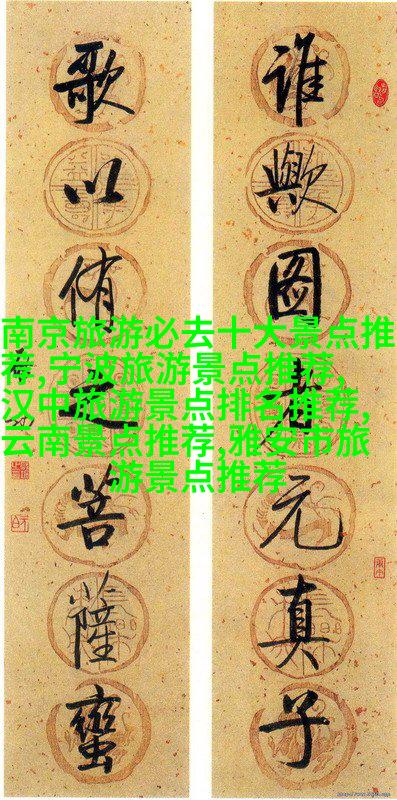 谁歟图元真子
歌以侑之菩薩蠻
南京旅游必去十大景点推
荐,宁波旅游景点推荐,
汉中旅游景点排名推荐,
云南景点推荐,雅安市旅
游景点推荐